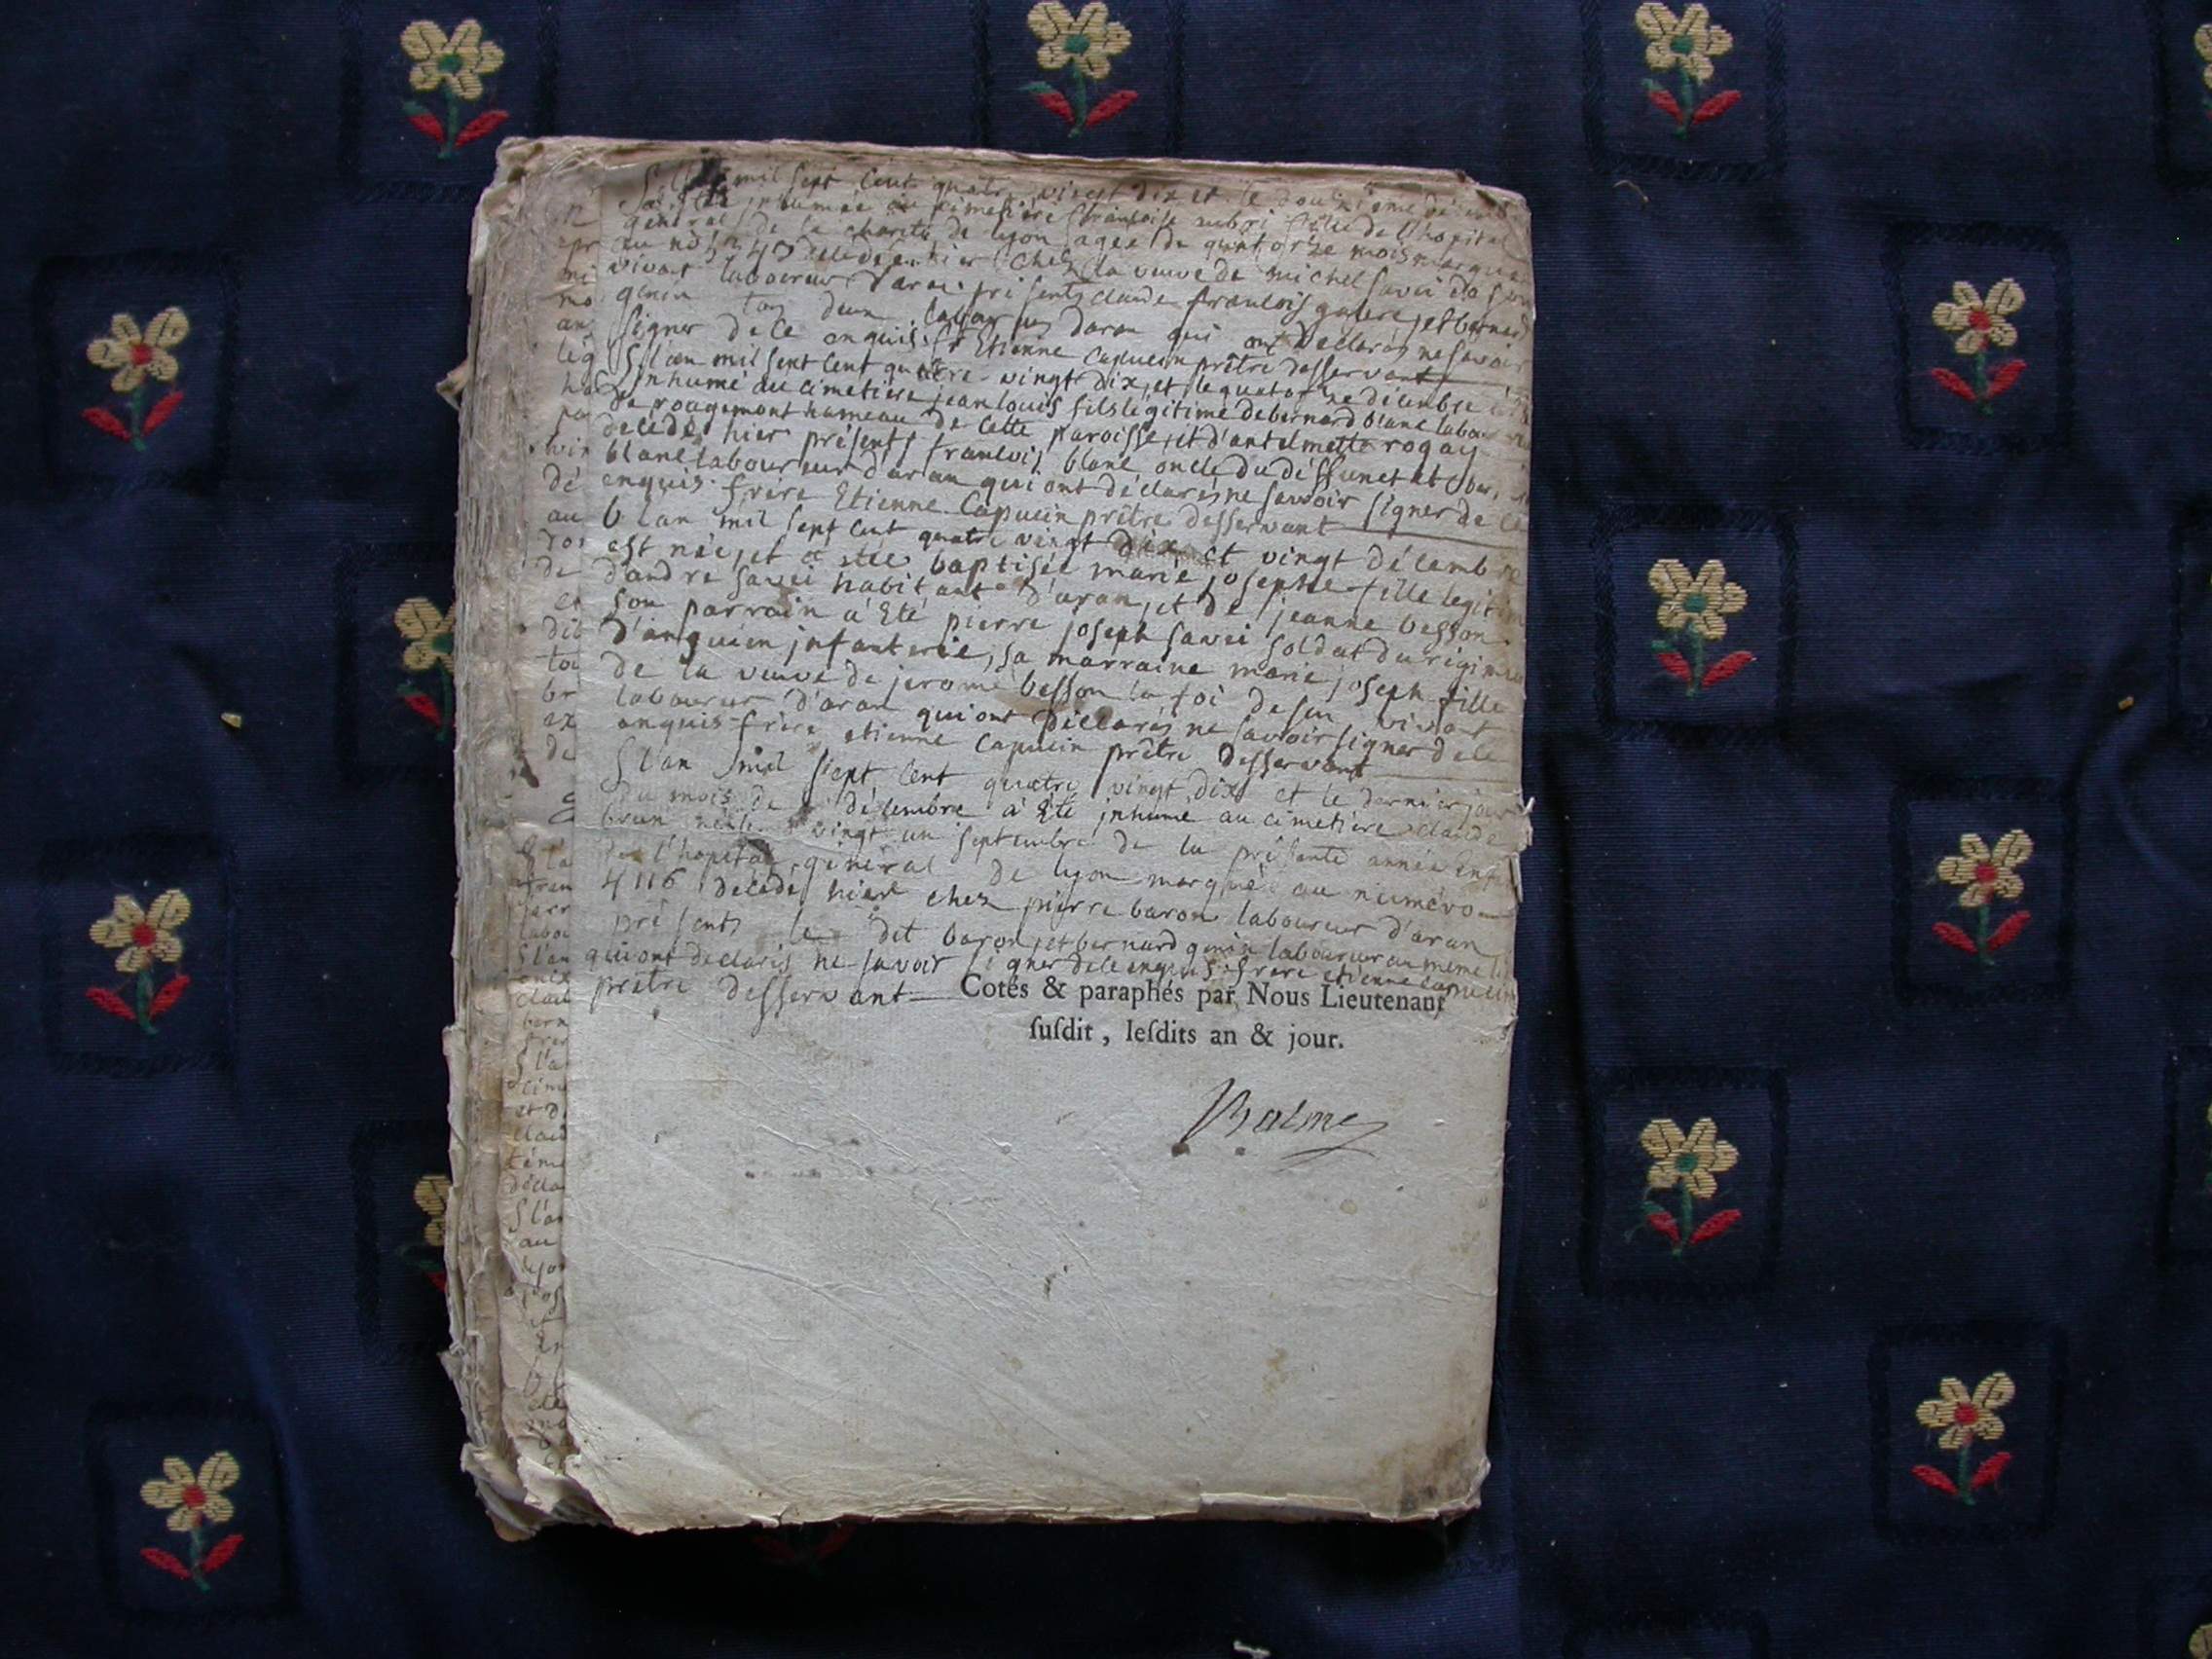 S l'an mil sept cent quatre vingt dix et le douzieme décembre
a été inhumée au cimetière françoise aubri fille de l'hopital
general de la charité de lyon agée de quatorze mois marquée
au no decedée hier chez la veuve de michel savei de son
vivant laboureur d'aran. présents claude françois galere, et bernard
genin tous deux laboureurs daran qui ont déclarés ne savoir
signer de ce enquis. fr Etienne capucin prêtre desservant
S l'an mil sept cent quatre-vingt dix, et le quatorze décembre a été
inhumé au cimetière jean louis fils légitime de bernard blanc laboureur
de rougemont hameau de cette paroisse, et d'antelmette rogay
décédé hier présents francois blanc oncle du déffunct et
blanc laboureur d'aran qui ont déclarés ne savoir signer de ce
enquis. frère Etienne Capucin prêtre desservant
b l'an mil sept cent quatre vingt dix et vingt décembre
est née, et a étée baptisée marie josephe fille legitime
d'andre savei habitant d'aran, et de jeanne besson
son parrain a été pierre joseph savei soldat du régiment
d'anguien infanterie, sa marraine marie joseph fille
de la veuve de jerome besson la foi de son vivant
laboureur d'aran qui ont déclarés ne savoir signer de ce
enquis. frère etienne capucin prêtre desservant
S l'an mil sept cent quatre vingt dix et le dernier jour
du mois de décembre a été inhumé au cimetière claude
brun vingt un septembre de la présente année enfant
de l'hopital général de lyon marqué au numéro
4116 décédé hier chez pierre baron laboureur d'aran
présents le dit baron, et bernard genin laboureur au meme lieu
qui ont déclarés ne savoir signer de ce enquis. frere etienne capucin
prêtre desservant
Cotés & paraphés par Nous Lieutenant
ſuſdit , leſdits an & jour.
Balme